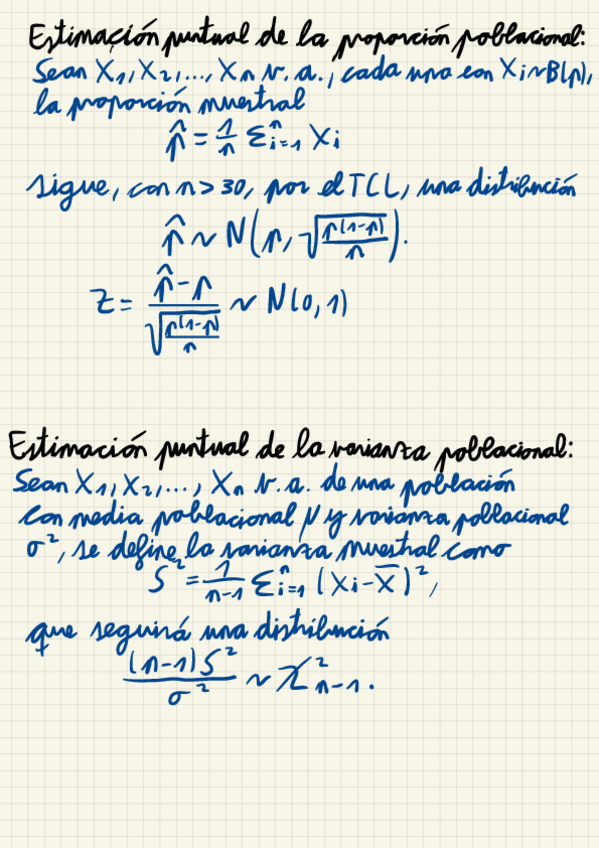 Estimación puntual de la proporción poblacional:
Sean X₁, X₂, ..., Xₙ v.a., cada una con Xᵢ~B(p),
la proporción muestral
p̂ = 1/n Σᵢ₌₁ⁿ Xᵢ
sigue, con n > 30, por el TCL, una distribución
p̂ ~ N(p, √(p(1-p)/n)).
Z = (p̂ - p)/√(p(1-p)/n) ~ N(0,1)
Estimación puntual de la varianza poblacional:
Sean X₁, X₂, ..., Xₙ v.a. de una población
con media poblacional μ y varianza poblacional
σ², se define la varianza muestral como
S² = 1/(n-1) Σᵢ₌₁ⁿ (Xᵢ - X̄)²,
que seguirá una distribución
(n-1)S²/σ² ~ χ²ₙ₋₁.